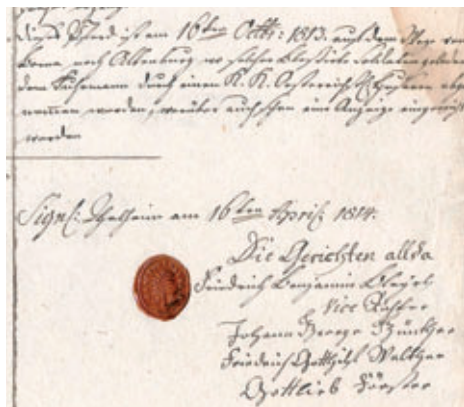 dieses Pferd ist am 16ten Octbr: 1813. auf dem Wege von
Borna nach Altenburg wo solcher Blessirte Soldaten gefahren
dem Fuhrmann durch einen K. K. Oesterreich. Husaren abge
nommen worden, worüber auch schon eine Anzeige eingereicht
worden
Signl: am 16ten April 1814.
Die Gerichten allda
Friedrich Benjamin
Vice Richter
Johann George Günther
Friedrich Gotthilf Walther
Gottlieb Förster